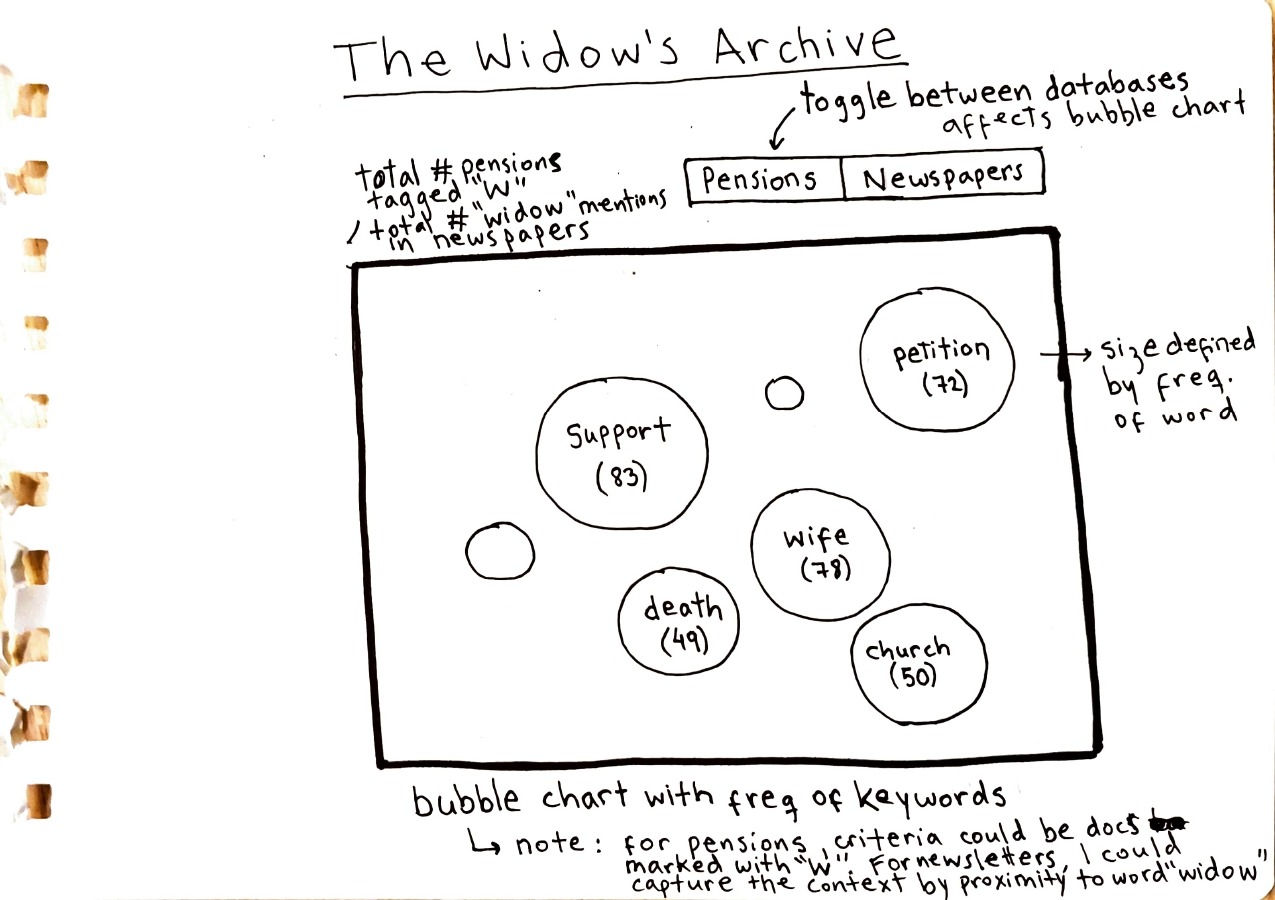 The Widow's Archive
toggle between databases
affects bubble chart
total # pensions
tagged "W"
/ total # "widow" mentions
in newspapers
Pensions Newspapers
petition
(72)
size defined
by freq.
of word
Support
(83)
wife
(78)
death
(49)
church
(50)
bubble chart with freq of keywords
↳ note: for pensions, criteria could be docs
marked with "W". For newsletters, I could
capture the context by proximity to word "widow"